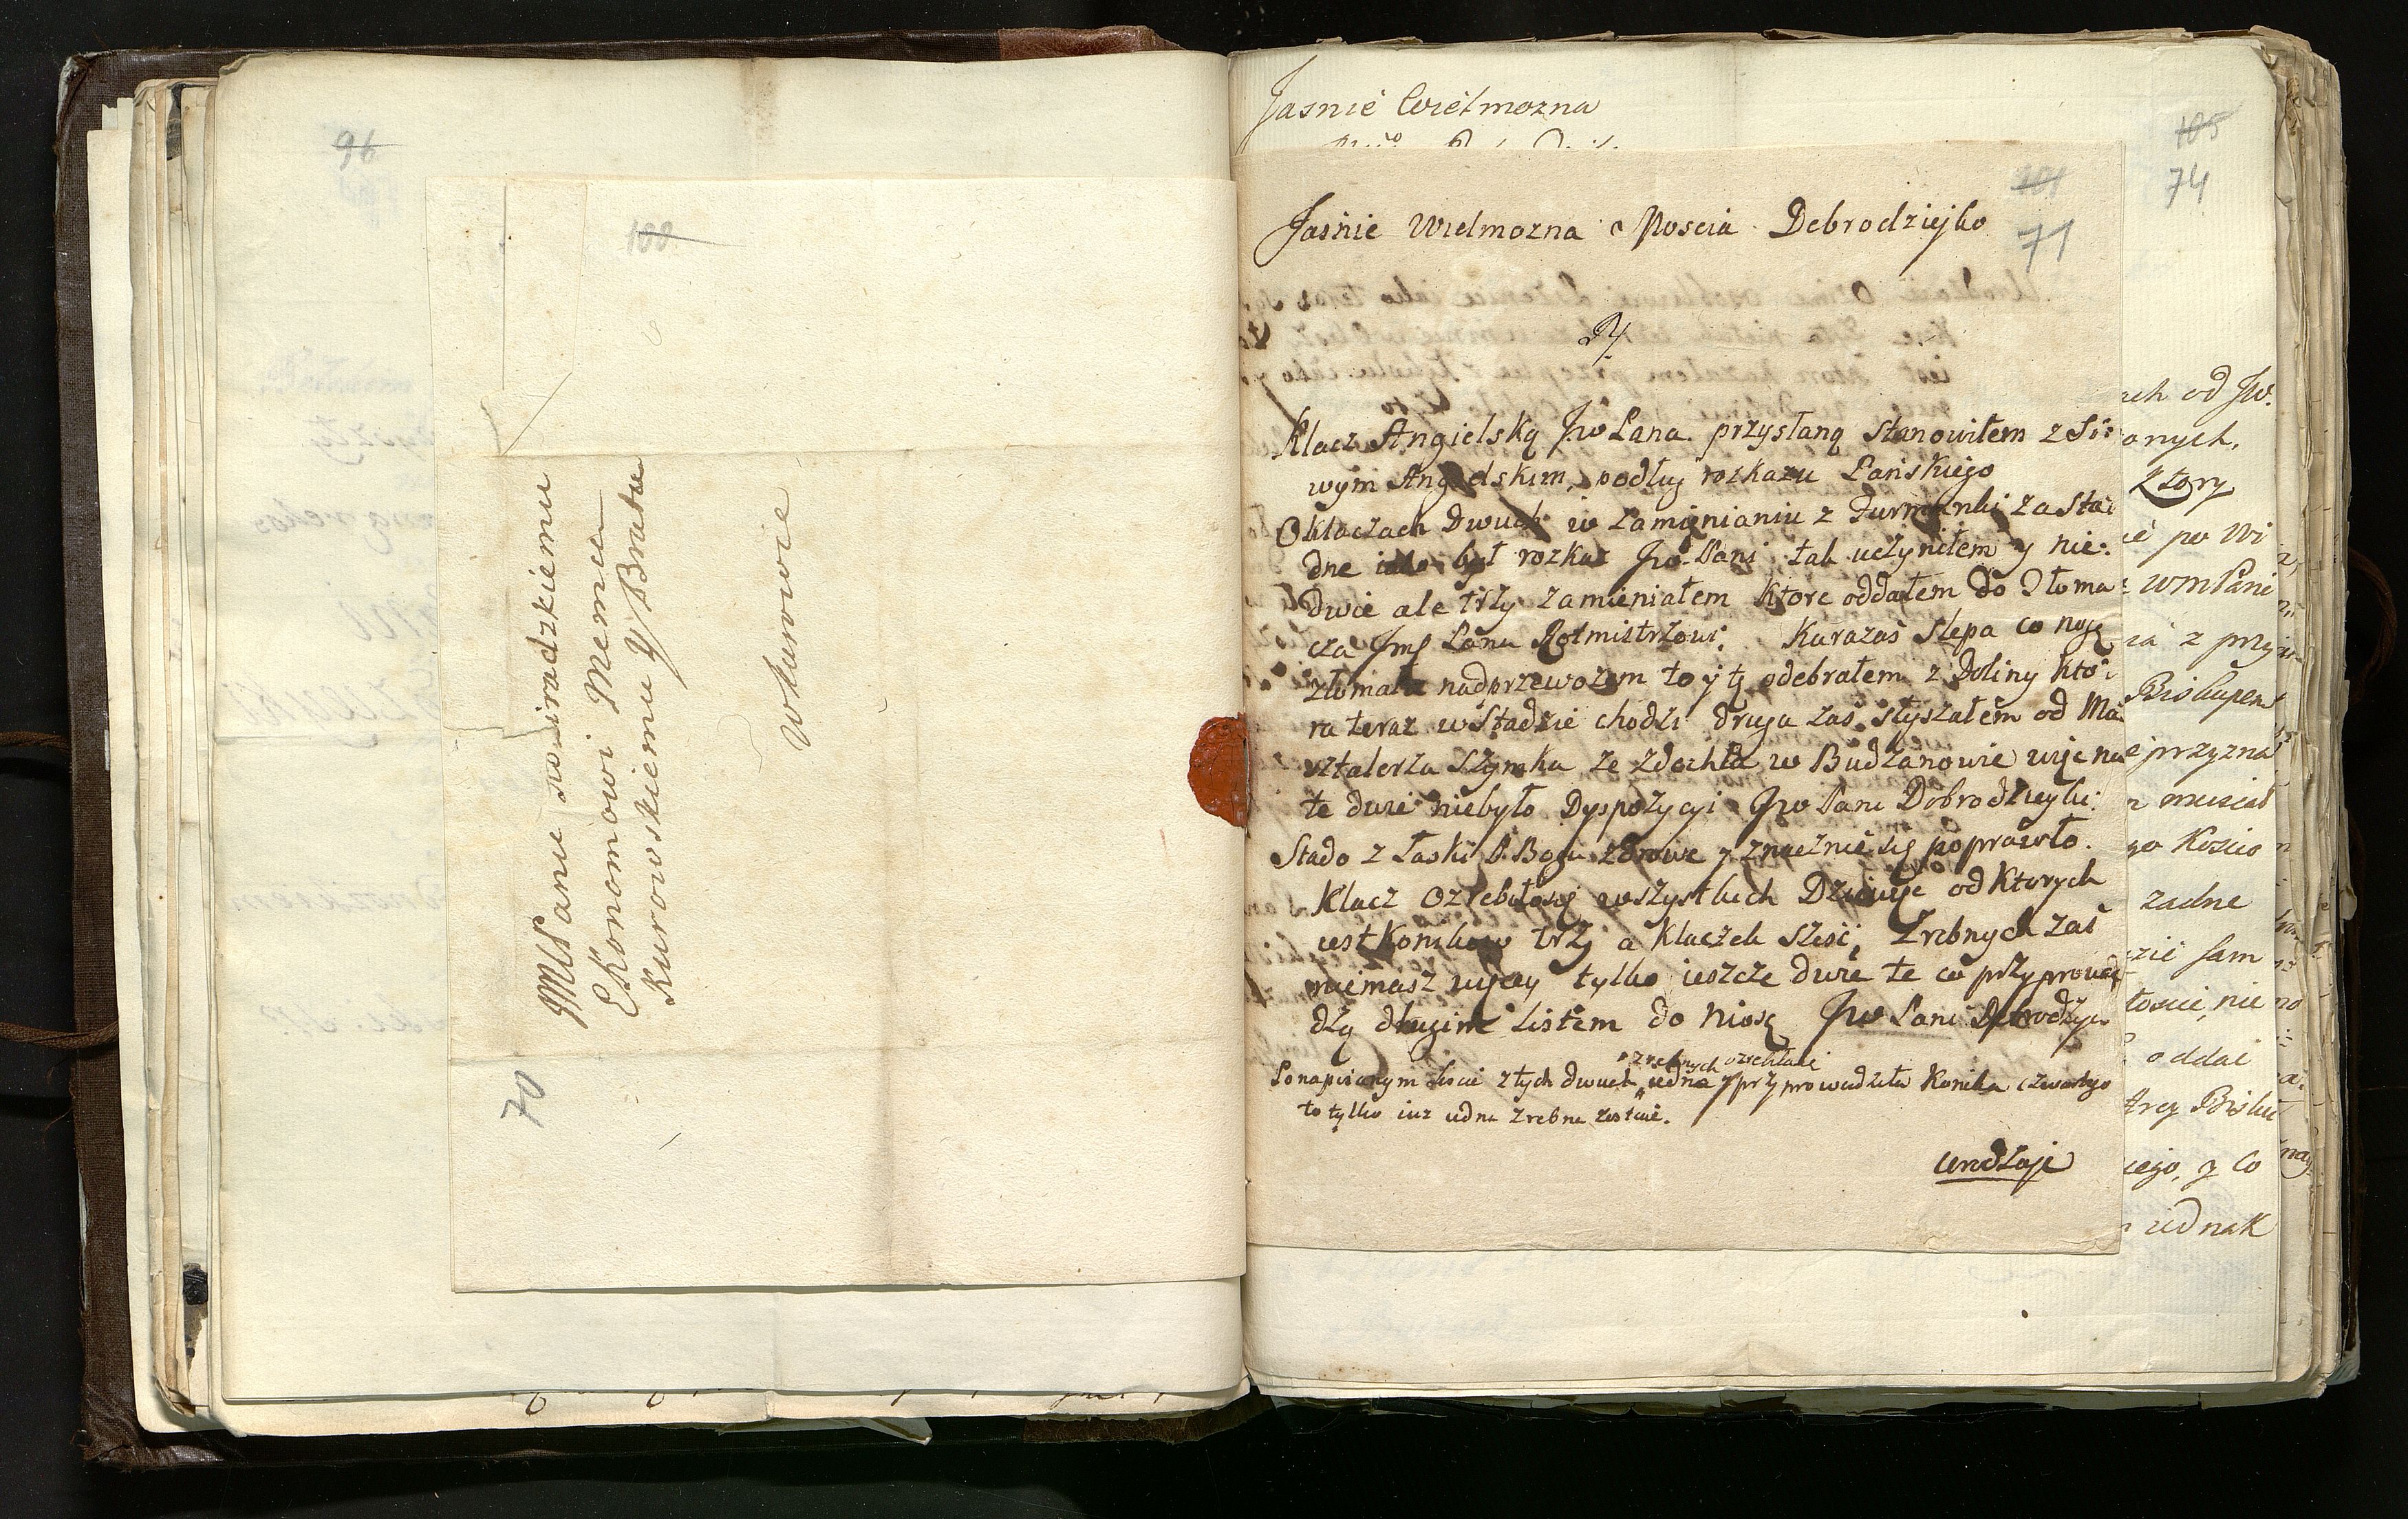 96
100
MPanu Sieniradzkiemu
Ekonomowi Memu
Kurowskiemu y Bratu
w Kurowie
70
Jasnie Wielmozna
105
74
101
71
Jasnie Wielmozna Moscia Dobrodziejko
Klacz Angielską Jw Pana przysłaną stanowiłem z Si:
wym Angielskim, podług rozkazu Pańskiego
O klaczach Dwuch w zamienianiu z Furmanki za sta:
dne iako był rozkaz Jw Pani tak uczyniłem y nie
dwie ale trzy zamieniałem Ktore oddałem do Tłoma
cza Jmp Panu Rotmistrzowi. Karazas slepa co nogę
złomała nad przewozem to y tę odebrałem z Doliny kto:
ra teraz w Stadzie chodzi druga zas słyszałem od Ma
sztalerza Szymka ze zdechła w Budzanowie więc na
te dwie niebyło Dyspozycyi Jw Pani Dobrodzieyki.
Stado z Łaski P. Boga zdrowe y znacznie się poprawiło.
Klacz Ozrebiłosię wszystkich Dziewięc od Ktorych
iest Konikow trzy a Klaczek szesc, Zrebnych zas
niemasz więcy tylko ieszcze dwie te co przyprowad
dzą drugim Listem do niosę Jw Pani Dobrodzyi
zrebnych ozrebiłasi
Po napisanym liscie z tych dwuch iedna y przyprowadziła Konika czwartego
to tylko iuz iedna zrebna zostaie.
Urodzaje
uch od Jw.
onych,
Ktory
ie po Wi
WmPani
ia z przy
Biskupem
przyzna
musiał
go Koscio
zadne
zie sam
tosci, nie
oddac
trcy Bisku
iego, y Co
iednak